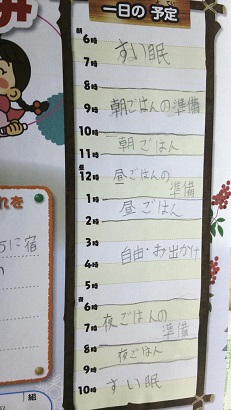 一日の 予定
朝
6時
すい眠
7時
8時
9時
朝ごはんの準備
10時
朝ごはん
11時
昼
12時
昼ごはんの
準備
1時
昼ごはん
2時
3時
自由・お出かけ
4時
5時
夜
6時
夜ごはんの
7時
準備
8時
夜ごはん
9時
すい眠
10時
れを
に宿
組